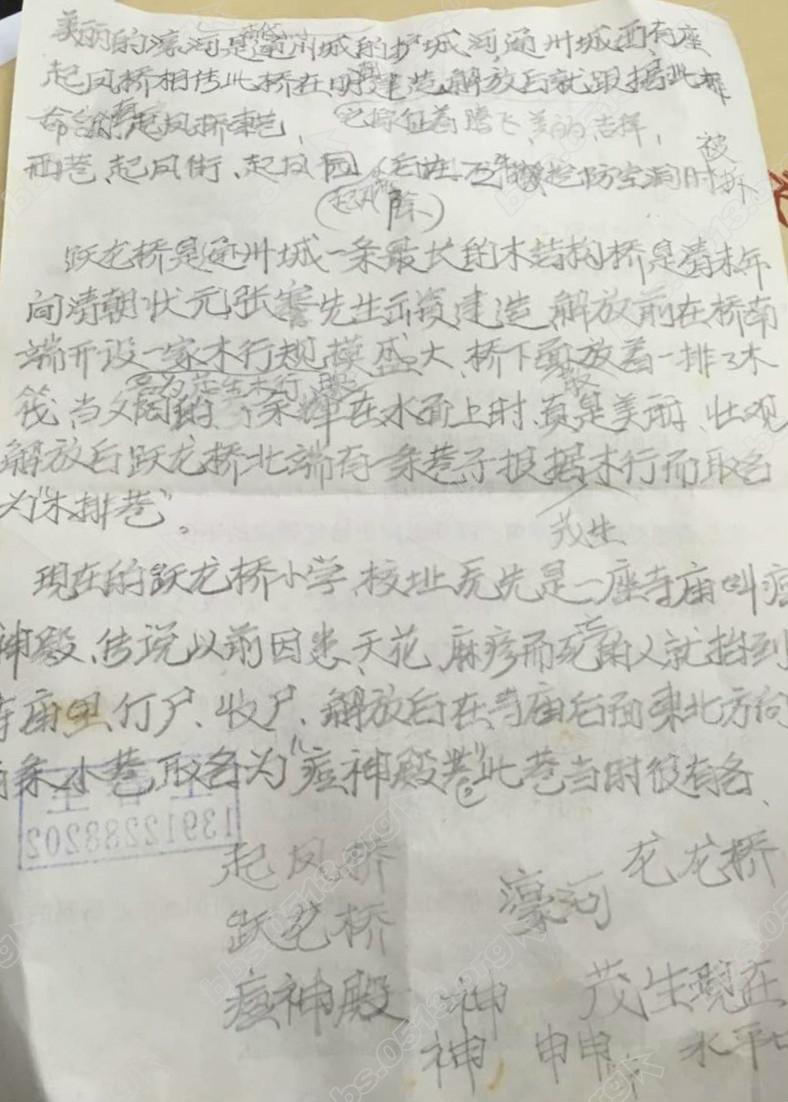 美丽的濠河是通州城的护城河,通州城西有座
起凤桥相传此桥在明建造,解放后就跟据此桥
命名起凤桥东巷,它象征着腾飞、美的吉祥,
西巷、起凤街、起凤园(在挖防空洞时被拆
除)
跃龙桥是通州城一条最长的木结构桥是清末年
间清朝状元张謇先生出资建造,解放前在桥南
端开设一家木行规模盛大,桥下面放着一排了木
筏,当夕阳的余辉在水面上时,真是美丽、壮观
解放后跃龙桥北端有一条巷子根据木行而取名
为"木排巷"。
茂生
现在的跃龙桥小学,校址原先是一座寺庙叫痘
神殿、传说以前因患天花、麻疹而死的人就抬到
寺庙里停尸、收尸、解放后在寺庙后面东北方向
有条小巷,取名为"痘神殿巷"此巷当时很有名、
13912288202
起凤桥
龙龙桥
濠河
跃龙桥
痘神殿
神
茂生现在
神
申申
水平
bbs.0513.org